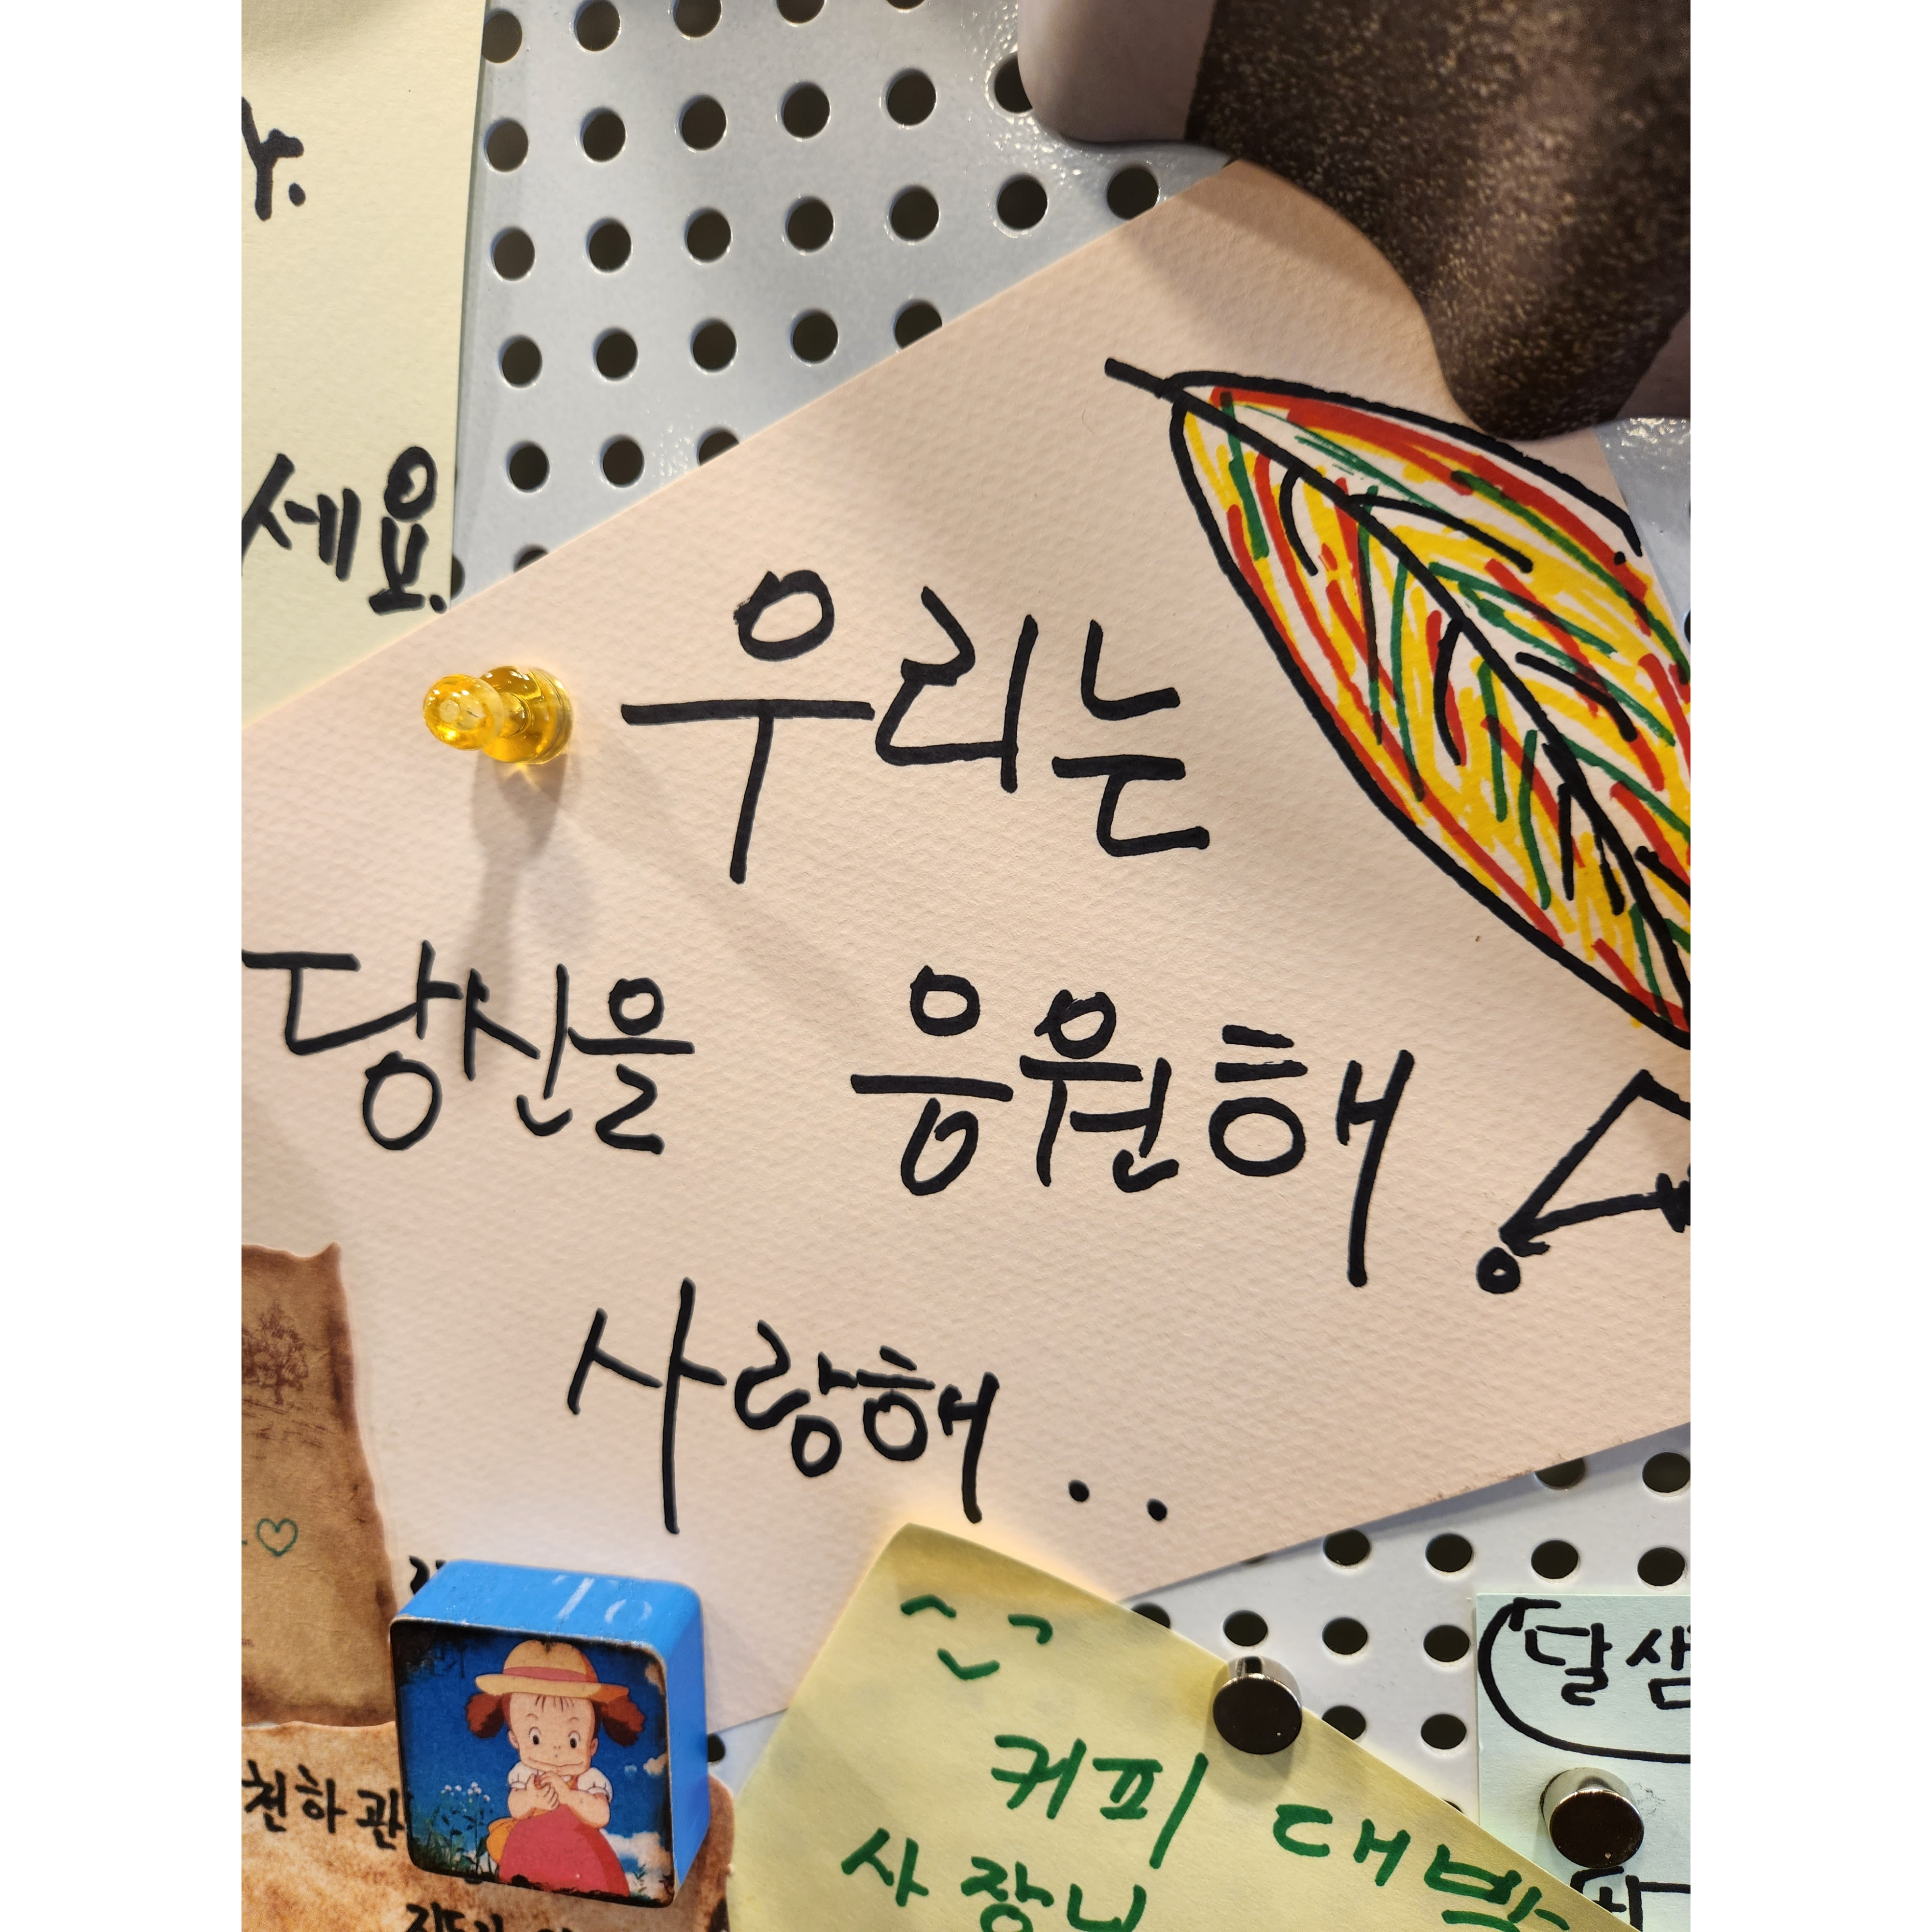 세요.
우리는
당신을 응원해
사랑해..
To
커피 대박
사장님
달샘
천하 관